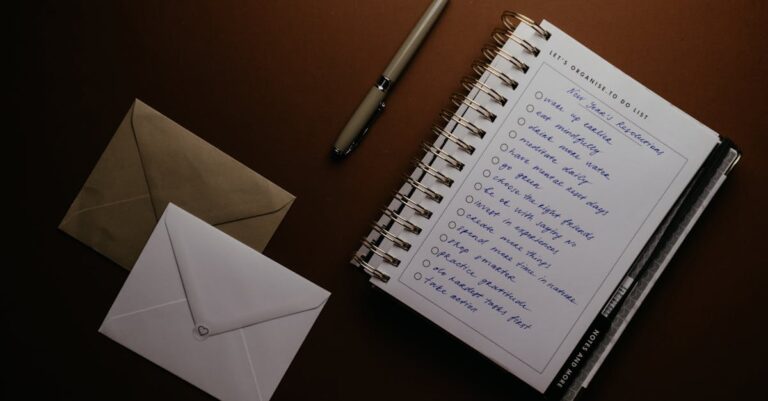 LET'S ORGANISE. TO DO LIST
New Year's Resolutions
wake up earlier
eat mindfully
drink more water
meditate daily
have mental reset days
go green
choose the right friends
be ok with saying No
invest in experiences
create more things
spend more time in nature
shop smarter
practice gratitude
do hardest tasks first
take action
NOTES AND MORE